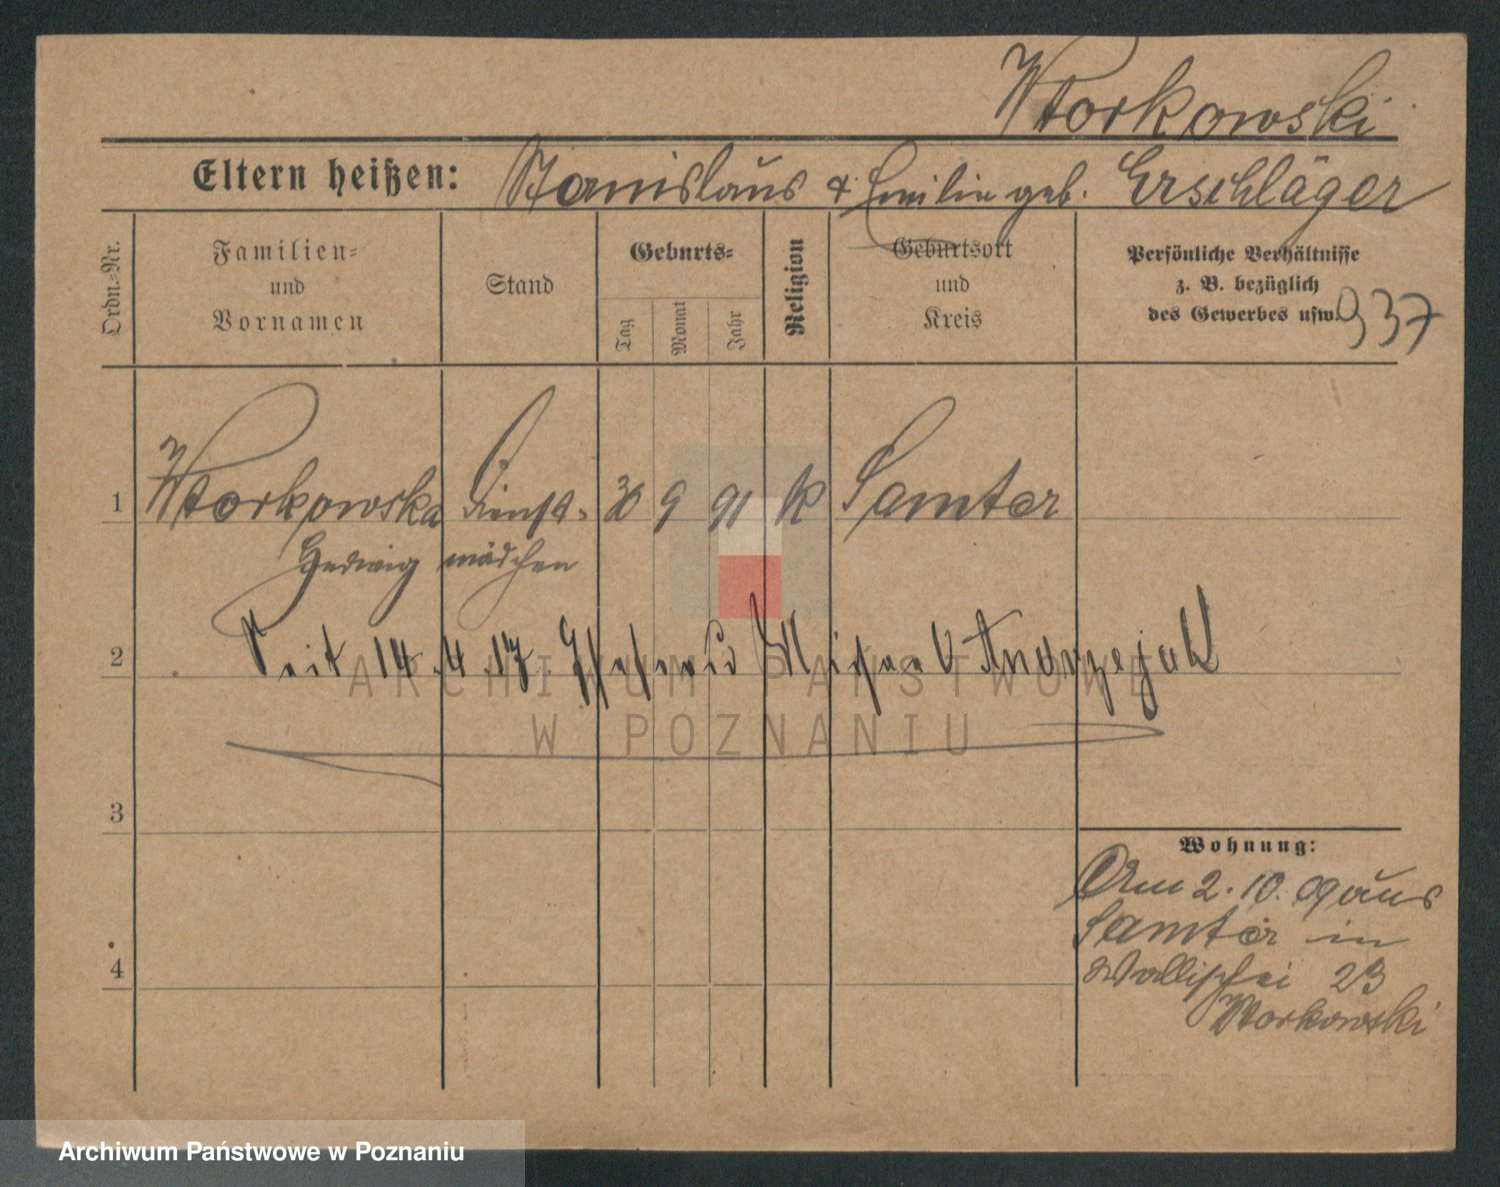 Wtorkowski
Eltern heißen: Stanislaus & Emilie geb. Erschläger
Ordn.-Nr.
Familien-
und
Vornamen
Stand
Geburts-
Tag
Monat
Jahr
Religion
Geburtsort
und
Kreis
Persönliche Verhältnisse
z. B. bezüglich
des Gewerbes usw.
937
1 Wtorkowska Dienst- 30 9 91 k Samter
Hedwig mädchen
2 Seit 14.4.17. Ehefrau Michael Andrzejak
3
Wohnung:
Am 2.10.09 aus
Samter in
4
Wallischei 23
Wtorkowski
ARCHIWUM PAŃSTWOWE
W POZNANIU
Archiwum Państwowe w Poznaniu